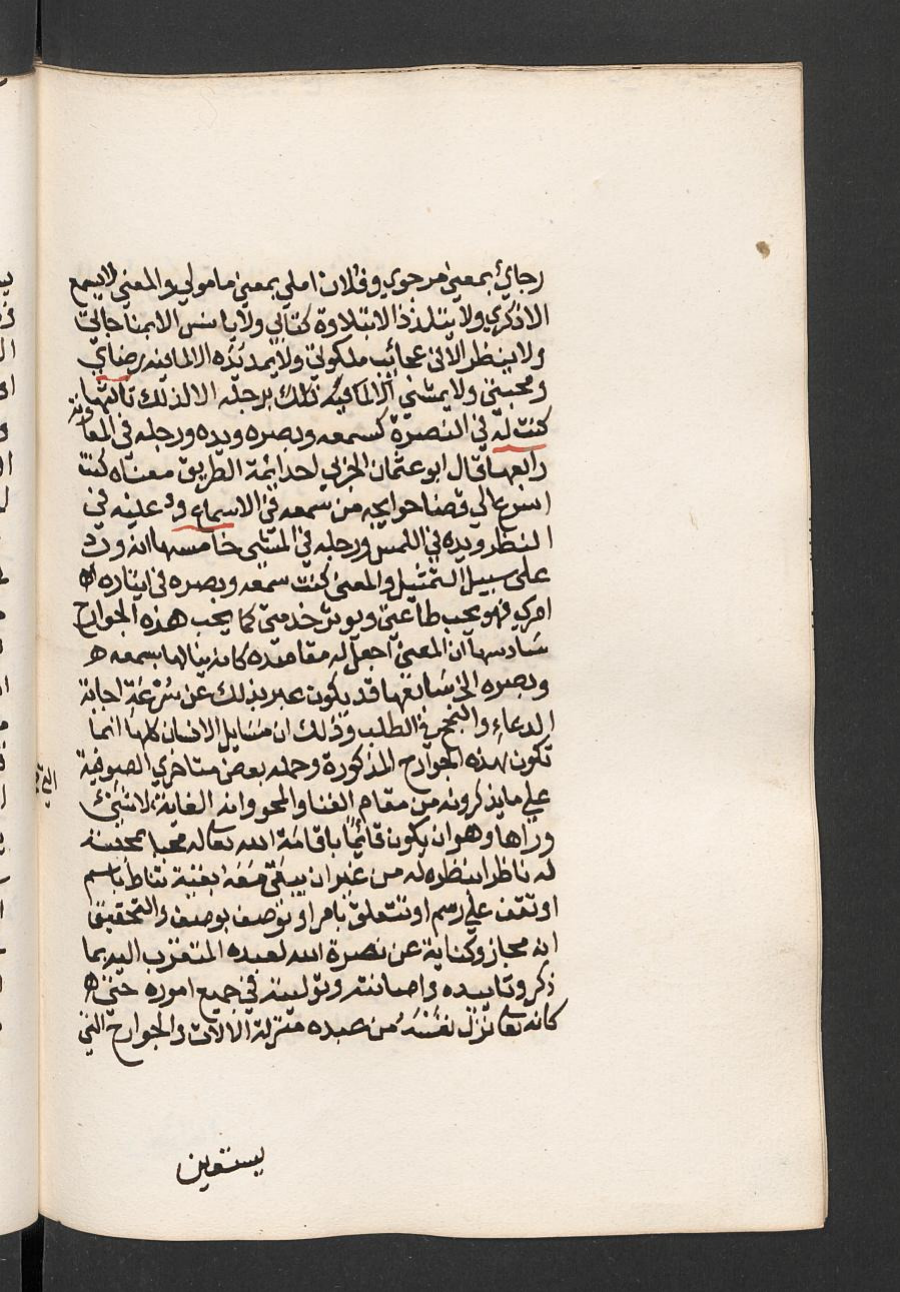 رجائ بمعني مرجوي وفلان املي بمعني مامولي والمعني لا يسمع
الا ذكري ولا يتلذذ الا بتلاوة كتابي ولا يانس الا بمناجاتي
ولا ينظر الا في عجائب ملكوتي ولا يمد يده الا لما فيه رضاي
ومحبتي ولا يمشي الا لما فيه ذلك برجله الا لذلك ثالثها
كنت له في النصرة كسمعه وبصره ويده ورجله في المعاونة
رابعها قال ابو عثمان الحزبي احد ائمة الطريق معناه كنت
اسرع الي قضا حوايجه من سمعه في الاسماع وعينه في
النظر ويده في اللمس ورجله في المشي خامسها انه ورد
علي سبيل التمثيل والمعني كنت سمعه وبصره في ايثاره
امري فهو يحب طاعتي ويوثر خدمتي كما يحب هذه الجوارح
سادسها ان المعني اجعل له مقاصده كانه ينالها بسمعه
وبصره الخ سابعها قد يكون عبر بذلك عن سرعة اجابة
الدعاء والنجح في الطلب وذلك ان مسايل الانسان كلها انما
تكون بهذه الجوارح المذكورة وحمله بعض متاخري الصوفية
علي ما يذكرونه من مقام الفنا والمحو وانه الغاية لا شئ
وراها وهو ان يكون قائما باقامة الله تعاله محبا بمحبته
له ناظرا بنظره له من غير ان يبقي معه بقية تناط باسم
او تقف علي رسم او تتعلق بامر او توصف بوصف والتحقيق
انه مجاز وكناية عن نصرة الله لعبده المتقرب اليه بما
ذكر وتاييده واعانته وتوليته في جميع اموره حتي
كانه تعا نزل نفسه من عبده منزلة الالات والجوارح التي
يستعين